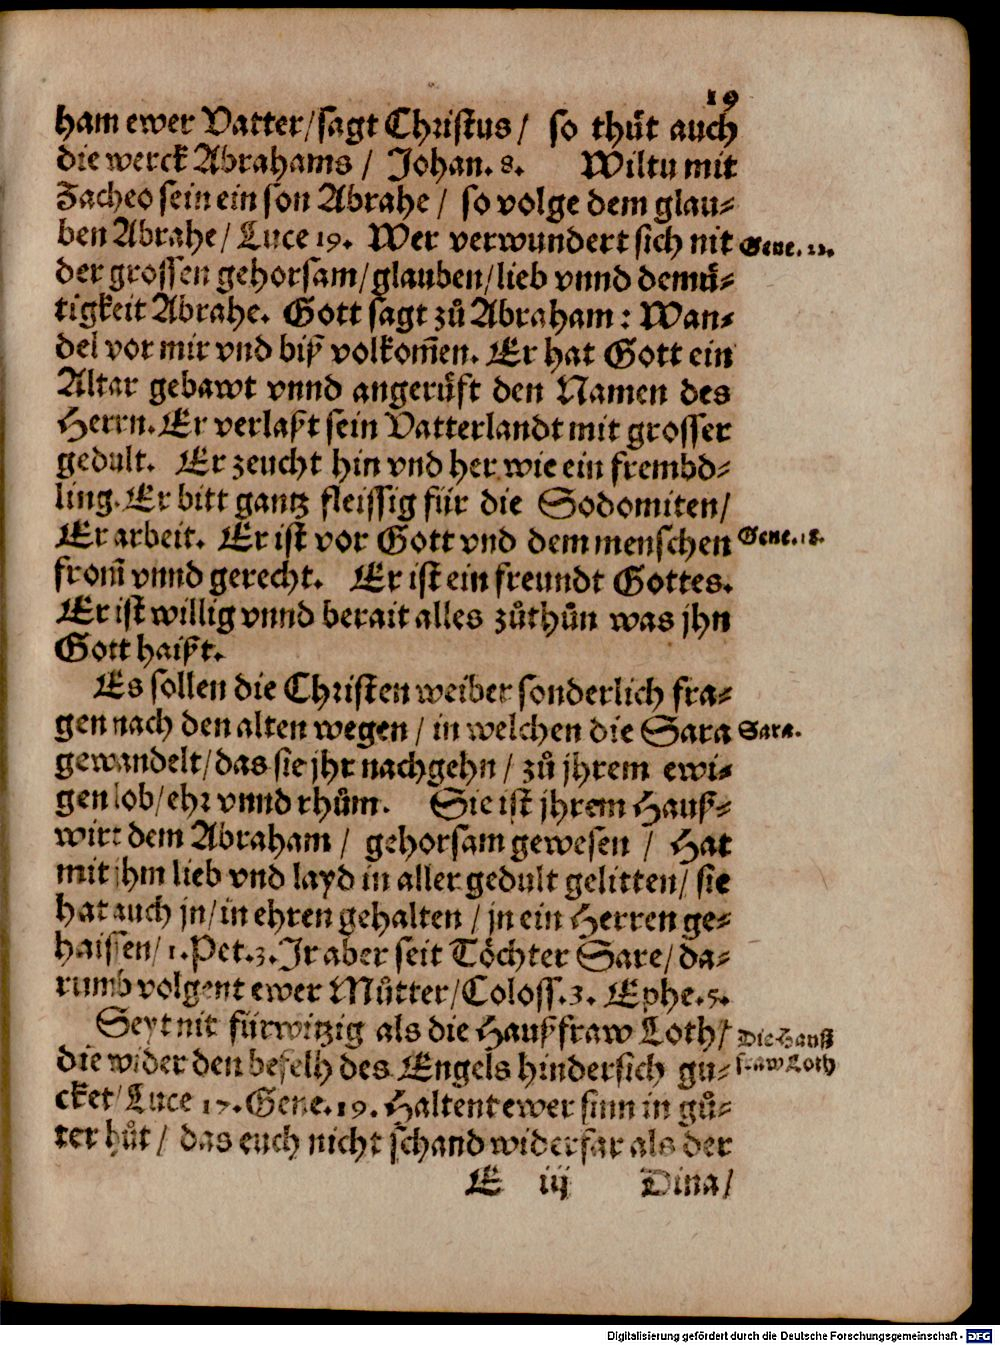 19
ham ewer Vatter/sagt Christus/ so thůt auch
die werck Abrahams / Johan. 8. Wiltu mit
Zacheo sein ein son Abrahe / so volge dem glau-
ben Abrahe/ Luce 19. Wer verwundert sich nit
Gene. 12.
der grossen gehorsam/glauben/lieb vnnd demů-
tigkeit Abrahe. Gott sagt zů Abraham: Wan-
del vor mir vnd biß volkom̃en. Er hat Gott ein
Altar gebawt vnnd angerůft den Namen des
Herrn. Er verlaßt sein Vatterlandt mit grosser
gedult. Er zeucht hin vnd her wie ein frembd-
ling. Er bitt gantz fleissig für die Sodomiten/
Er arbeit. Er ist vor Gott vnd dem menschen
Gene. 18.
from̃ vnnd gerecht. Er ist ein freundt Gottes.
Er ist willig vnnd berait alles zůthůn was jhn
Gott haißt.
Es sollen die Christen weiber sonderlich fra-
gen nach den alten wegen / in welchen die Sara
Sara.
gewandelt/das sie jhr nachgehn / zů jhrem ewi-
gen lob/ehr vnnd rhům. Sie ist jhrem Hauß-
wirt dem Abraham / gehorsam gewesen / Hat
mit jhm lieb vnd layd in aller gedult gelitten/ sie
hat auch jn/in ehren gehalten / jn ein Herren ge-
haissen/ 1. Pet. 3. Ir aber seit Töchter Sare/ da-
rumb volgent ewer Můtter/Coloss. 3. Ephe. 5.
Seyt nit fürwitzig als die Haußfraw Loth/
Die Hauß
fraw Loth
die wider den befelh des Engels hindersich gu-
cket/ Luce 17. Gene. 19. Haltent ewer sinn in gů-
ter hůt / das euch nicht schand widerfar als der
E iij Dina/
Digitalisierung gefördert durch die Deutsche Forschungsgemeinschaft - DFG